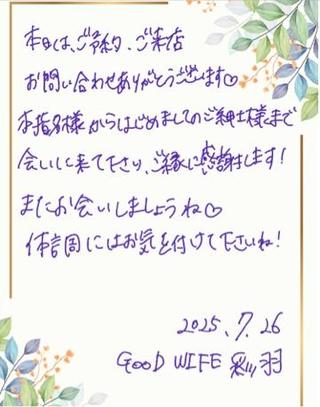 本日は、ご予約、ご来店
お問い合わせありがとうございます♡
本指名様からはじめましてのご紳士様まで
会いに来て下さり、ご縁に感謝します!
またお会いしましょうね♡
体調にはお気を付けて下さいね!
2025.7.26
GOOD WIFE 彩羽